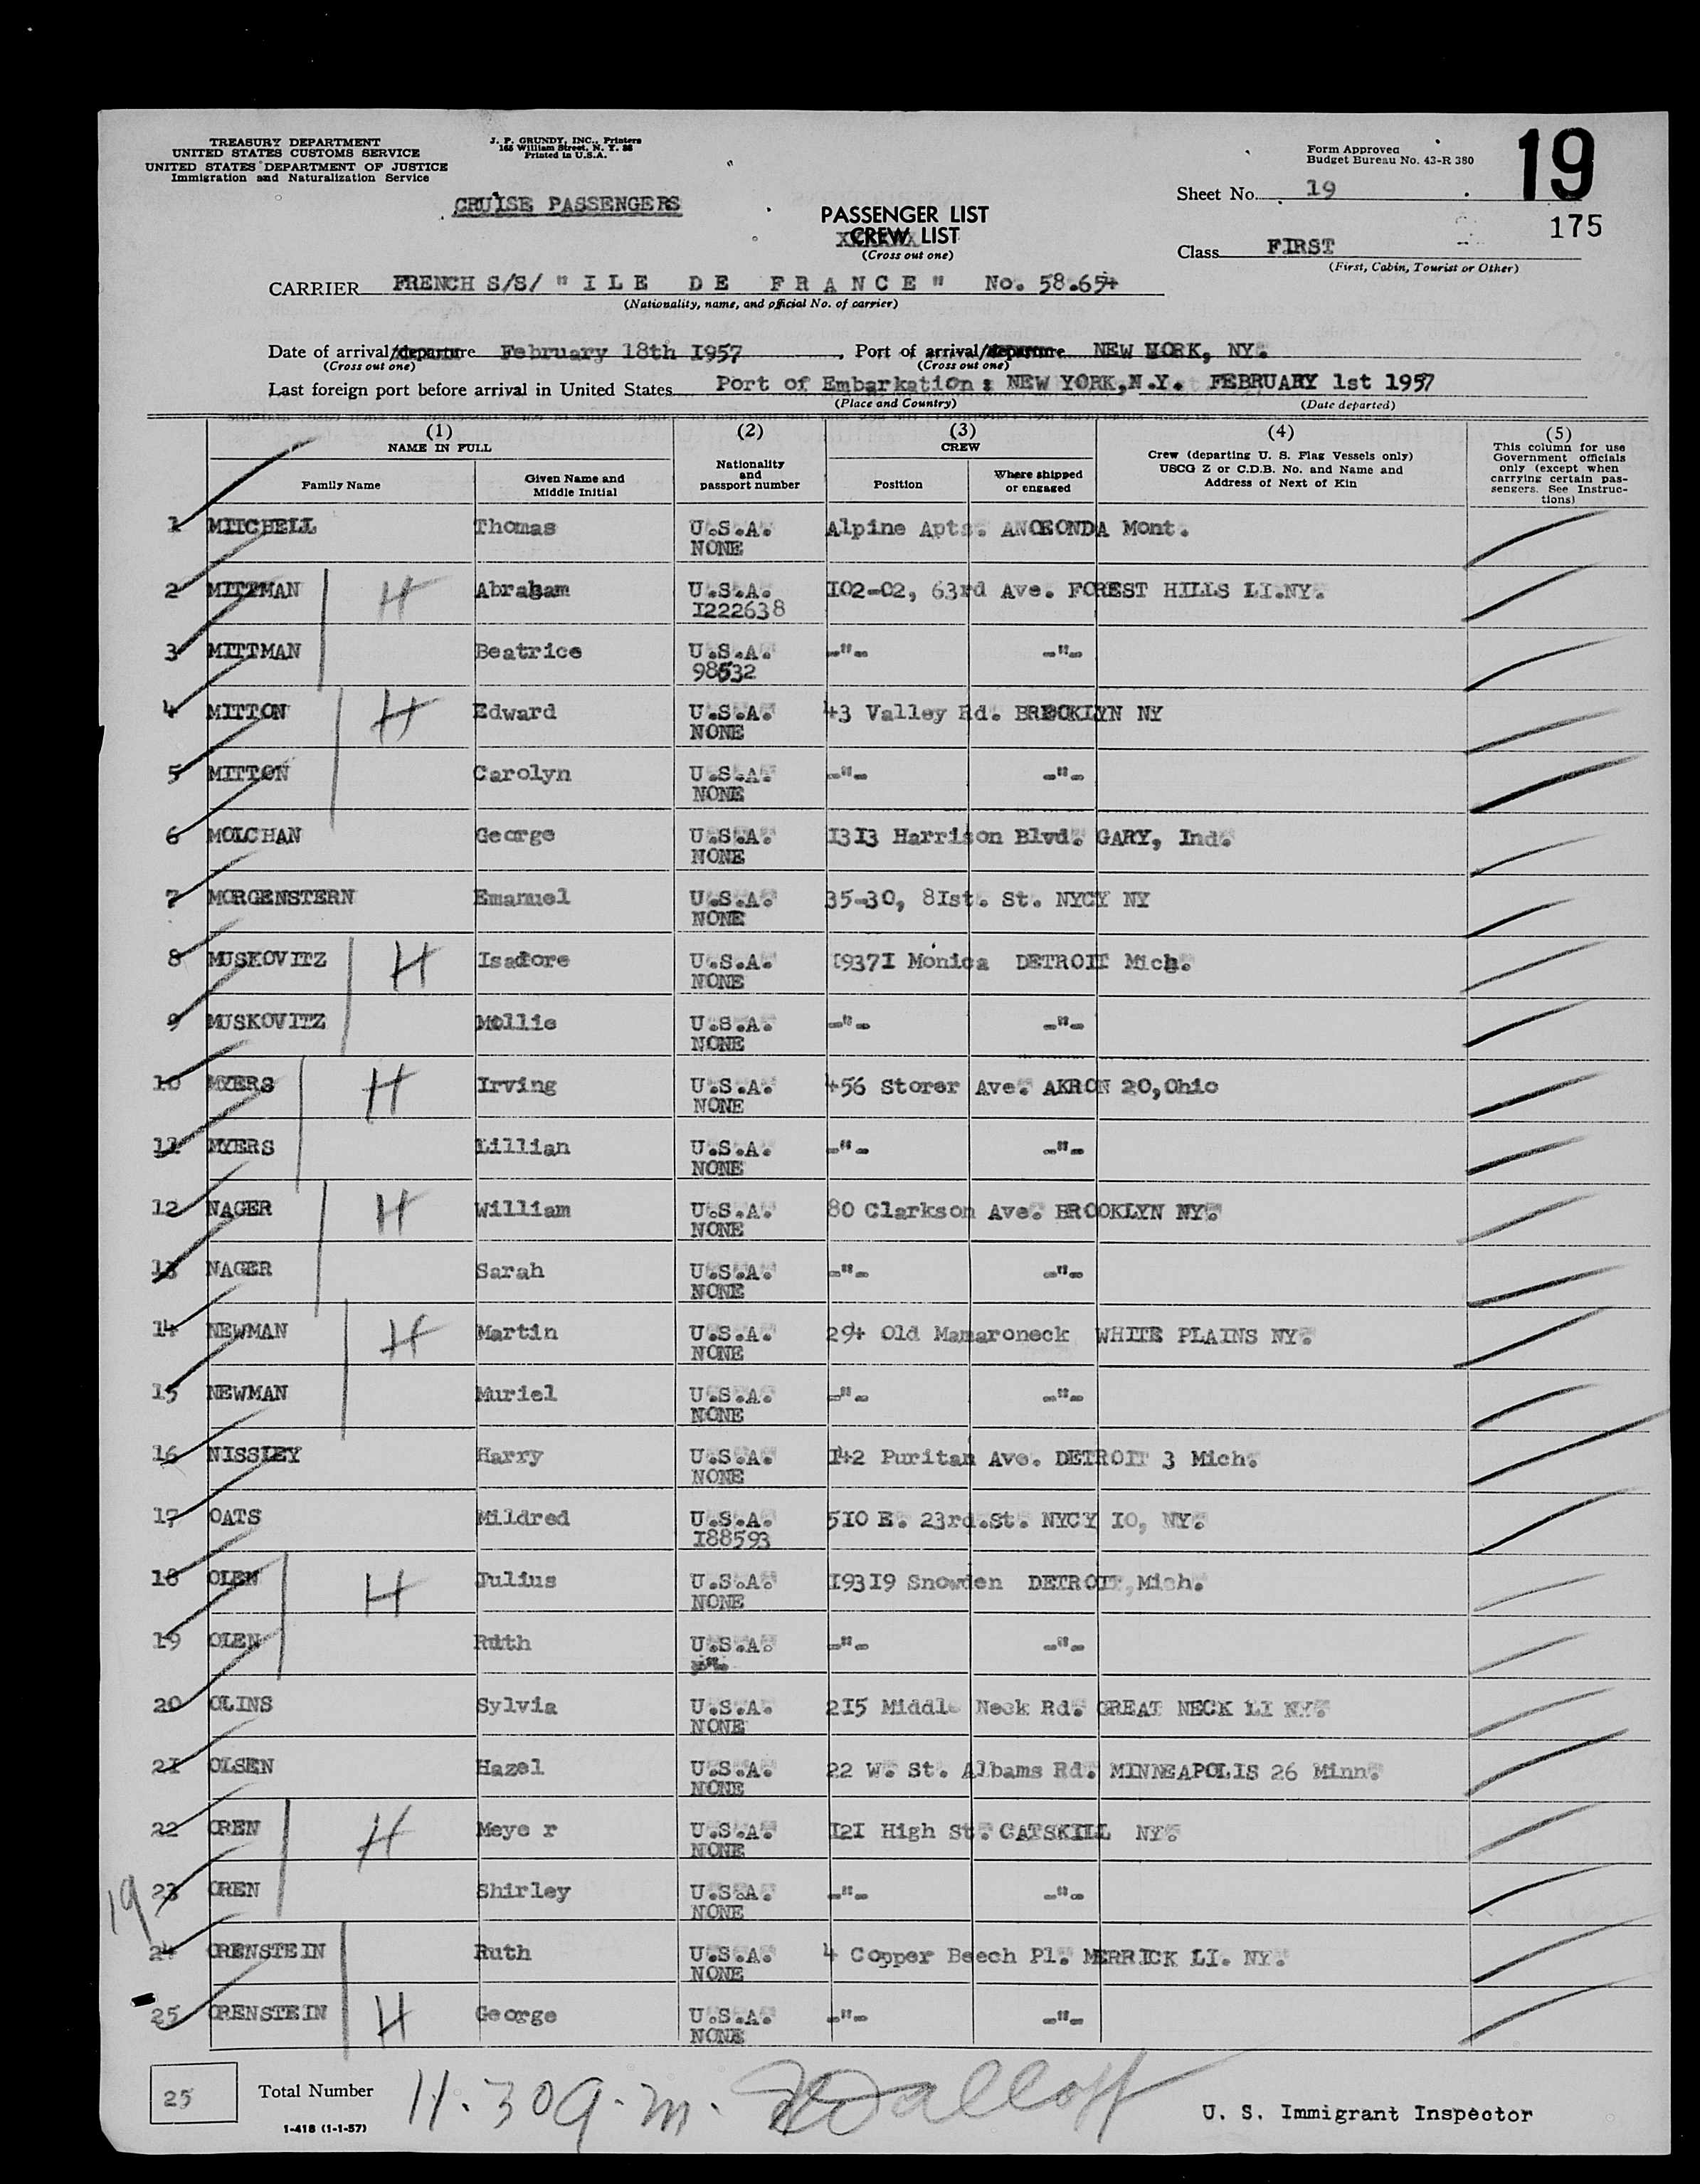 TREASURY DEPARTMENT
UNITED STATES CUSTOMS SERVICE
UNITED STATES DEPARTMENT OF JUSTICE
Immigration and Naturalization Service
J. F. GRUNDY, INC., Printers
165 William Street, N. Y. 38
Printed in U.S.A.
Form Approved
Budget Bureau No. 43-R 380
19
Sheet No. 19
175
CRUISE PASSENGERS
PASSENGER LIST
CREW LIST
(Cross out one)
Class FIRST
(First, Cabin, Tourist or Other)
CARRIER FRENCH S/S/ "ILE DE FRANCE" No. 58.654
(Nationality, name, and official No. of carrier)
Date of arrival/departure February 18th 1957, Port of arrival/departure NEW YORK, NY.
(Cross out one) (Cross out one)
Last foreign port before arrival in United States Port of Embarkation : NEW YORK,N.Y. FEBRUARY 1st 1957
(Place and Country) (Date departed)
(1) (2) (3) (4) (5)
NAME IN FULL
Family Name
Given Name and Middle Initial
Nationality and passport number
CREW
Position
Where shipped or engaged
Crew (departing U. S. Flag Vessels only)
USCG Z or C.D.B. No. and Name and
Address of Next of Kin
This column for use
Government officials
only (except when
carrying certain pas-
sengers. See Instruc-
tions)
1 MITCHELL Thomas U.S.A. Alpine Apts. ANOEONDA Mont.
NONE
2 MITTMAN H Abraham U.S.A. I02-02, 63rd Ave. FOREST HILLS LI.NY.
I222638
3 MITTMAN Beatrice U.S.A. -"- -"-
98532
4 MITTON H Edward U.S.A. 43 Valley Rd. BROOKLYN NY
NONE
5 MITTON Carolyn U.S.A. -"- -"-
NONE
6 MOLCHAN George U.S.A. I3I3 Harrison Blvd. GARY, Ind.
NONE
7 MORGENSTERN Emanuel U.S.A. 35-30, 8Ist. St. NYCY NY
NONE
8 MUSKOVITZ H Isadore U.S.A. I937I Monica DETROIT Mich.
NONE
9 MUSKOVITZ Mollie U.S.A. -"- -"-
NONE
10 MYERS H Irving U.S.A. 456 Storer Ave. AKRON 20,Ohio
NONE
11 MYERS Lillian U.S.A. -"- -"-
NONE
12 NAGER H William U.S.A. 80 Clarkson Ave. BROOKLYN NY.
NONE
13 NAGER Sarah U.S.A. -"- -"-
NONE
14 NEWMAN H Martin U.S.A. 294 Old Mamaroneck WHITE PLAINS NY.
NONE
15 NEWMAN Muriel U.S.A. -"- -"-
NONE
16 NISSLEY Harry U.S.A. I42 Puritan Ave. DETROIT 3 Mich.
NONE
17 OATS Mildred U.S.A. 5I0 E. 23rd.St. NYCY I0, NY.
I88593
18 OLEN H Julius U.S.A. I93I9 Snowden DETROIT,Mich.
NONE
19 OLEN Ruth U.S.A. -"- -"-
-"-
20 OLINS Sylvia U.S.A. 2I5 Middle Neck Rd. GREAT NECK LI NY.
NONE
21 OLSEN Hazel U.S.A. 22 W. St. Albams Rd. MINNEAPOLIS 26 Minn.
NONE
22 OREN H Meye r U.S.A. I2I High St. CATSKILL NY.
NONE
19
23 OREN Shirley U.S.A. -"- -"-
NONE
24 ORENSTEIN Ruth U.S.A. 4 Copper Beech Pl. MERRICK LI. NY.
NONE
25 ORENSTEIN H George U.S.A. -"- -"-
NONE
25 Total Number 11.30 a.m.
I-418 (1-1-57)
U. S. Immigrant Inspector